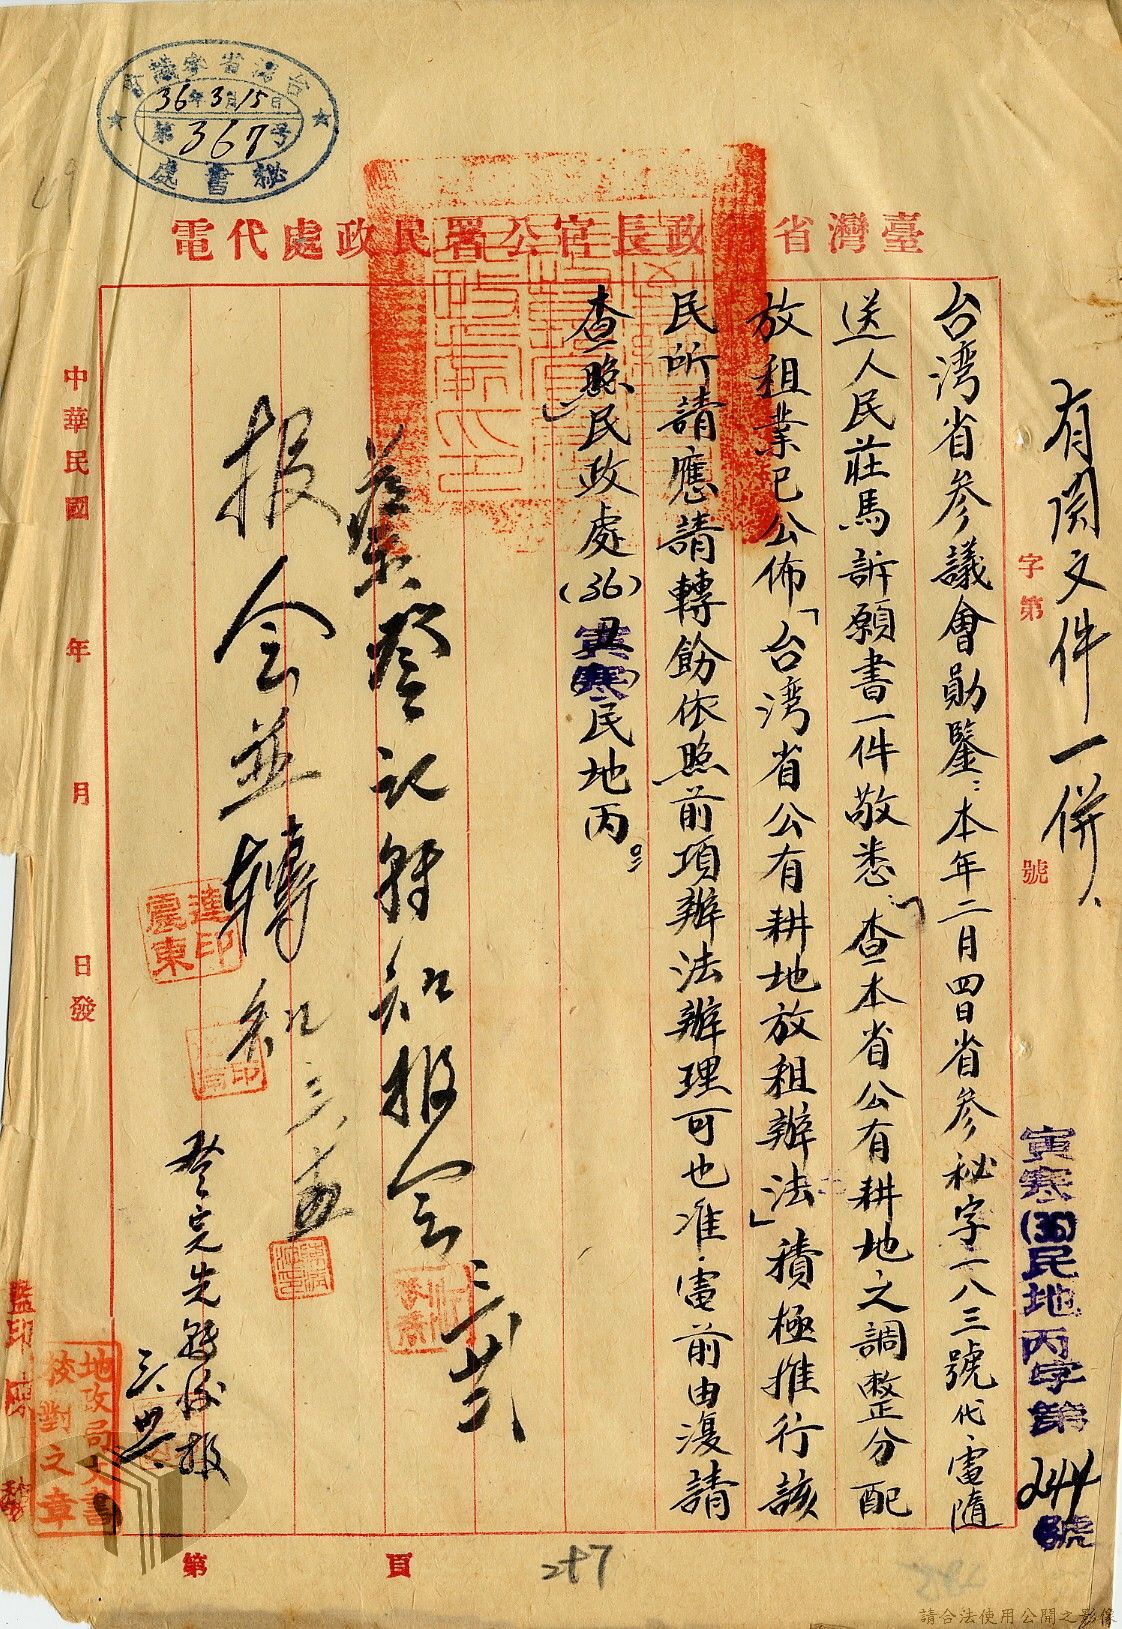 台灣省參議會
36年3月15日
第367号
秘書處
臺灣省行政長官公署民政處代電
有関文件一併、
字第 號
寅寒(36)民地丙字第244號
台湾省参議會勛鑒:本年二月四日省参秘字一八三號代電隨
送人民莊馬訴願書一件敬悉「查本省公有耕地之調整分配
放租業已公佈「台湾省公有耕地放租辦法」積極推行該
民所請應請轉飭依照前項辦法辦理可也准電前由復請
查照民政處(36)寅寒民地丙。
登記轉知報会 三、廿二
报会並轉知
登完先轉後报
連震東印
中華民國 年 月 日發
監印
地政局文書校對之章
第 頁
247
請合法使用公開之影像